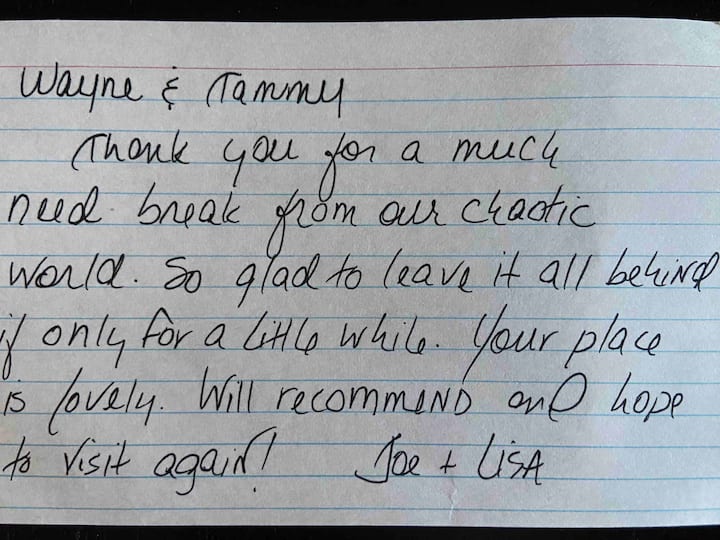 Wayne & Tammy
Thank you for a much
need break from our chaotic
world. So glad to leave it all behind
if only for a little while. Your place
is lovely. Will recommend and hope
to visit again! Joe + Lisa